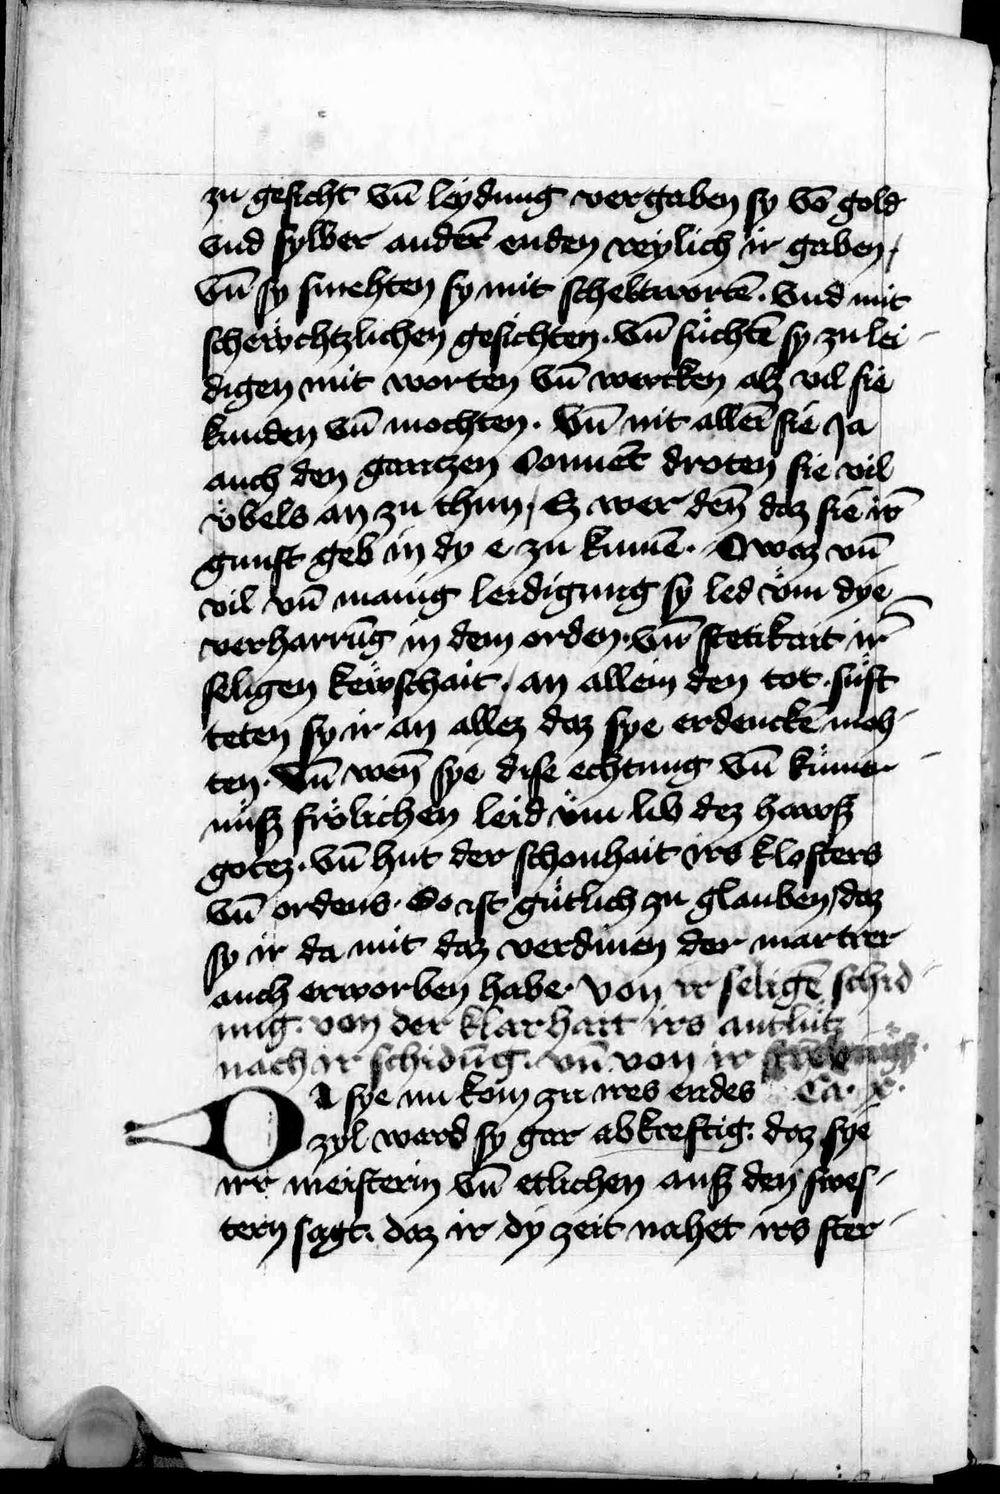 zu gesicht vn̄ leydung vergaben sy vō gold
vnd sylber anderē enden reylich ir gaben /
vn̄ sy smehten sy mit scheltwortē . vnd mit
schewchtzlichen gesichten . vn̄ suͤchtē sy zu lei-
digen mit worten vn̄ wercken alz vil sie
kunden vn̄ mochten . Vn̄ nit allei̅ sie Ja
auch den gantzen Conuēt droten sie vil
vͤbels an zu thun / Ez wer den̄ daz sie ir̄
gunst geb in dy e zu kumē . O waz vn̄
vil vn̄ manig leidigung sy led vͤm dye
verharrūg in dem orden . vn̄ stetikait ir̄
seligen kewschait . an allein den tot . suͤft
teten sy ir an allez daz sye erdenckē moh-
ten . Vn̄ wen̄ sye dise echtung vn̄ kuͤmer-
nuͤsz froͤlichen leid vͤm lib dez hawsz
gotez . vn̄ hut der schonhait irs klosters
vn̄ ordens . So ist guͤtlich zu glauben / daz
sy ir da mit daz verdinen der martrer
auch erworben habe . Von ir seligē schid-
ung . von der klarhait irs antlutz
nach ir schidūg . vn̄ von ir
Da sye nu kom zu ires endes Ca . x .
zyl ward sy gar abkreftig . daz sye
irr meisterin vn̄ etlichen ausz den swes-
tern sagt . daz ir dy zeit nahet irs ster-